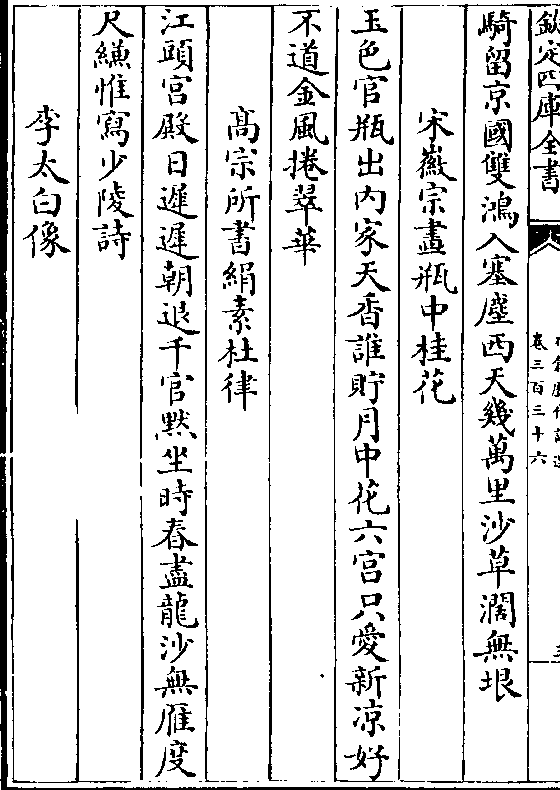 欽定四庫全書
卷三百三十六
騎留京國雙鴻入塞塵西天幾萬里沙草濶無垠
宋徽宗畫瓶中桂花
玉色官瓶出内家天香誰貯月中花六宫只愛新凉好
不道金風捲翠華
髙宗所書絹素杜律
江頭宫殿日遲遲朝退千官黙坐時春盡龍沙無雁度
尺縑惟寫少陵詩
李太白像